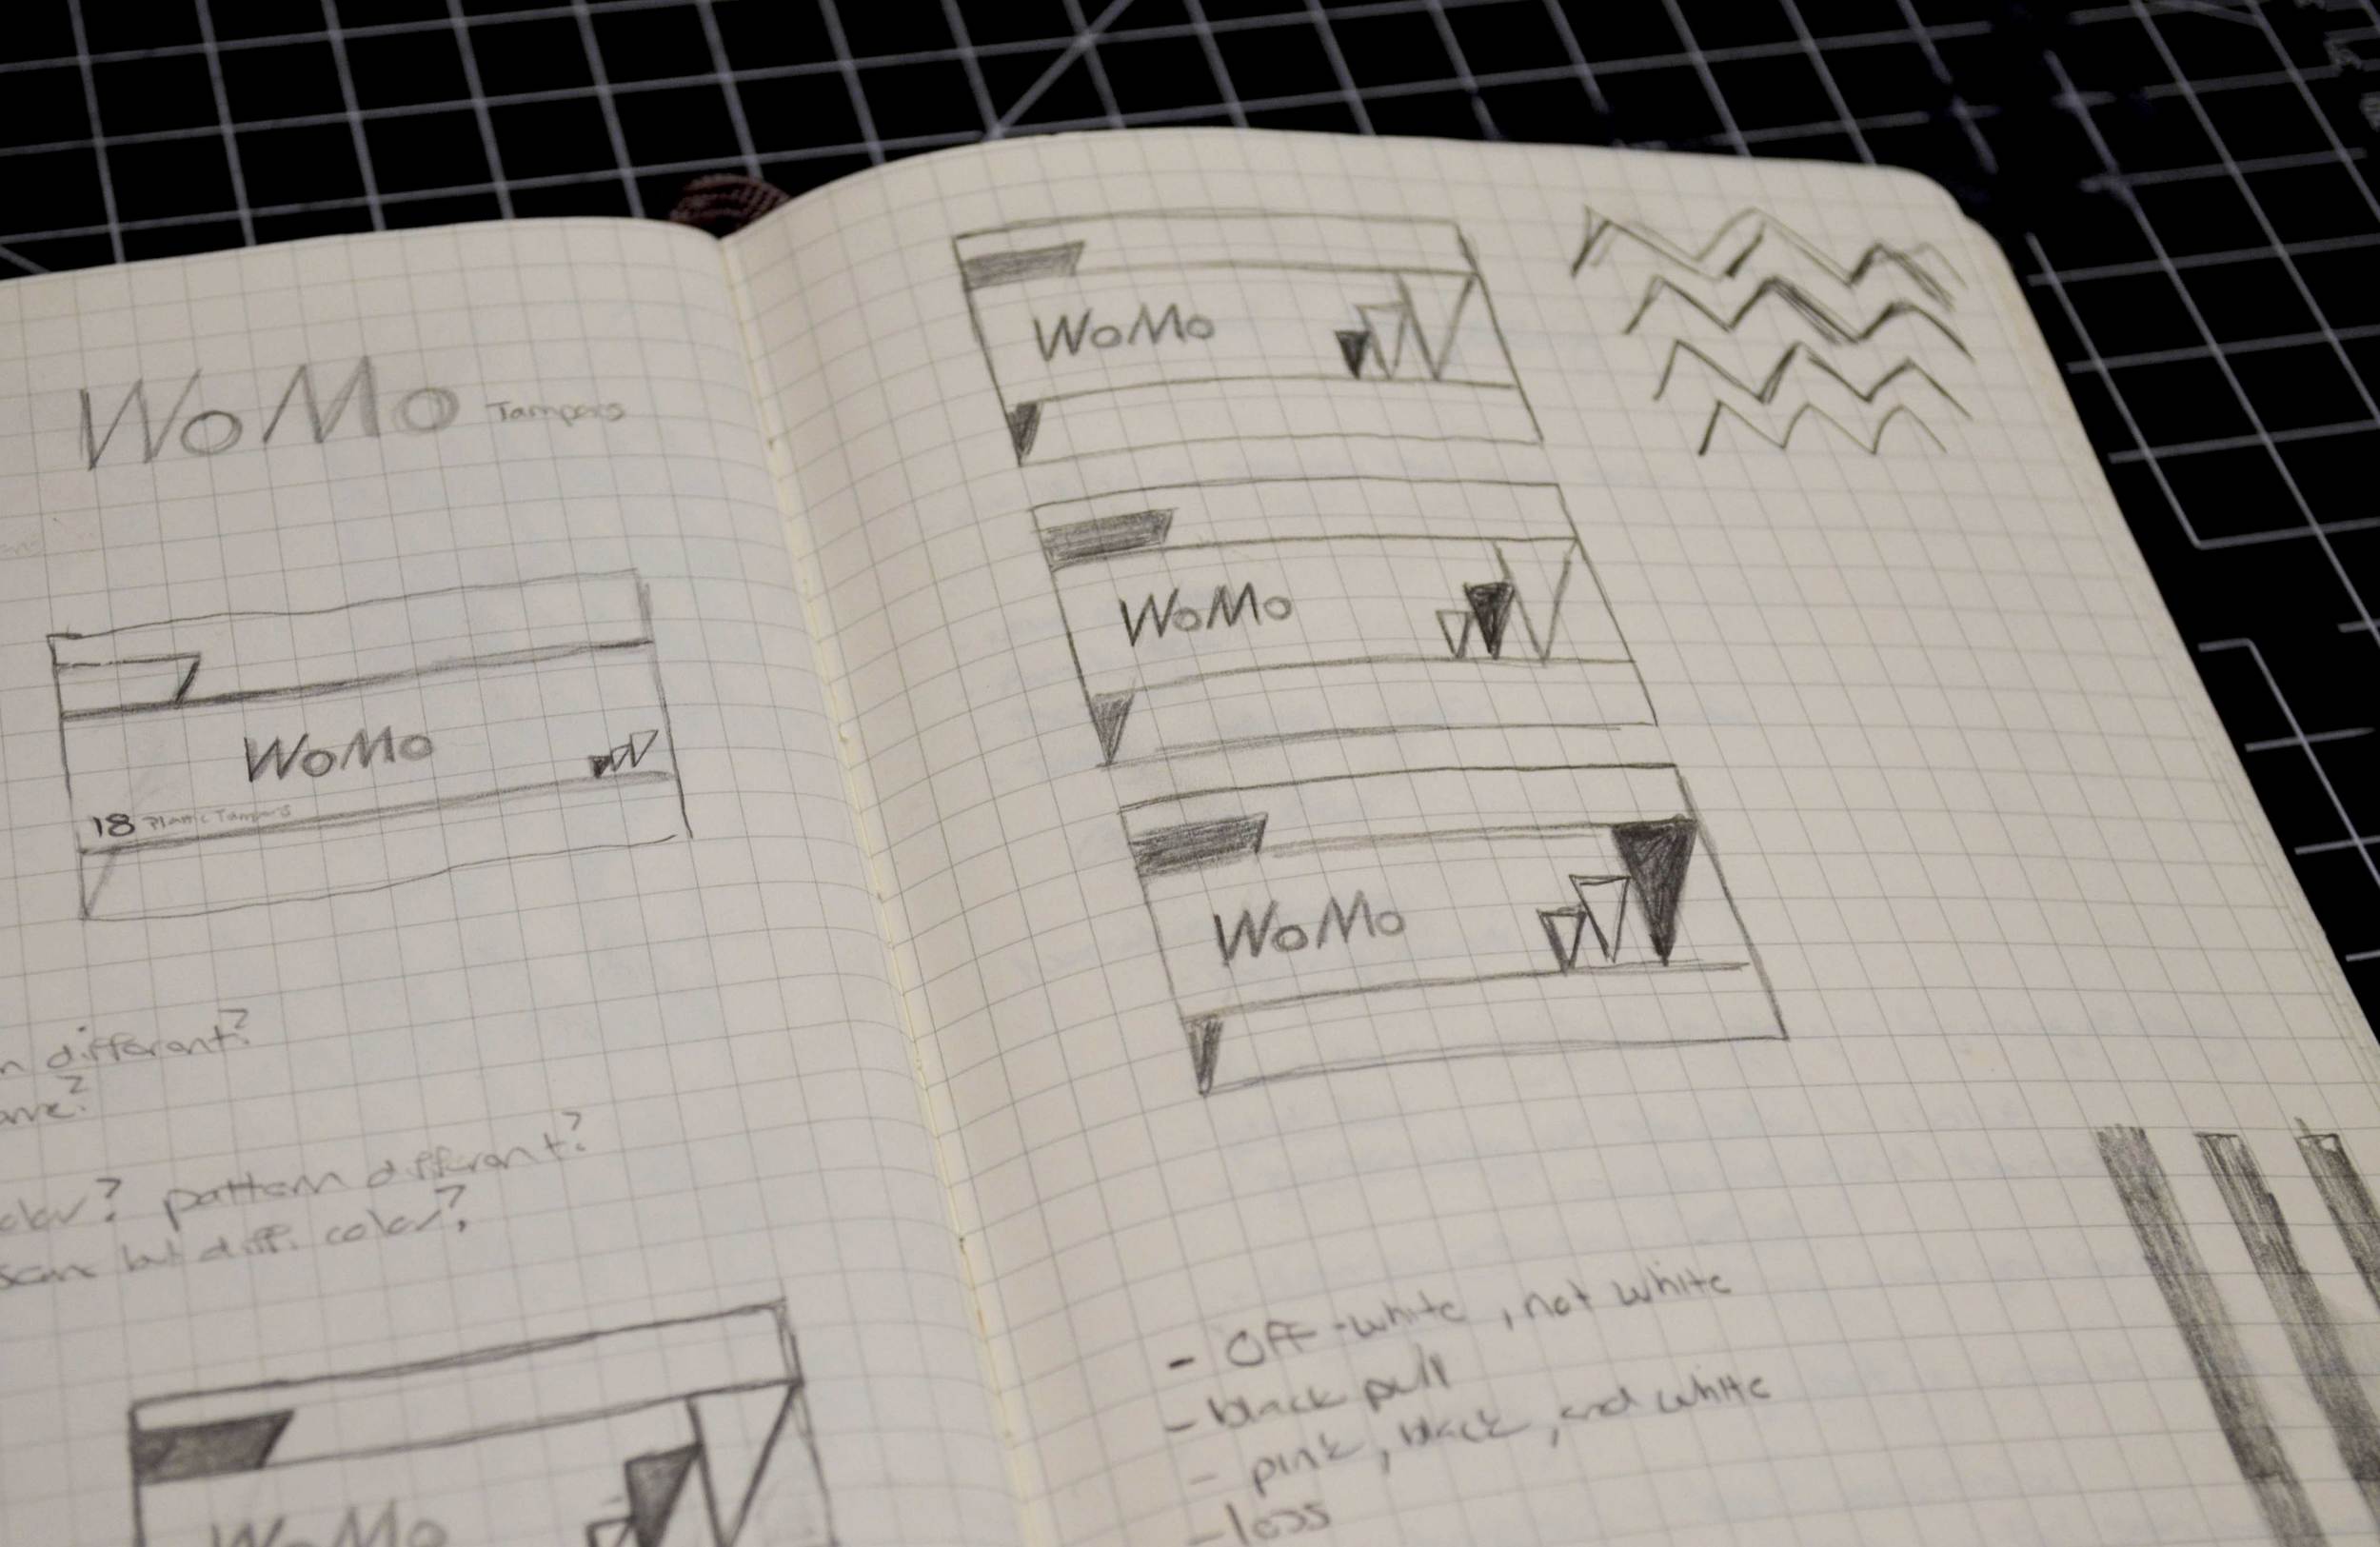 WoMo Tampons
WoMo
18 Plastic Tampons
different?
color? pattern different?
same but diff. color?
WoMo
WoMo
WoMo
WoMo
- Off-white, not white
- black pull
- pink, black, and white
- loss